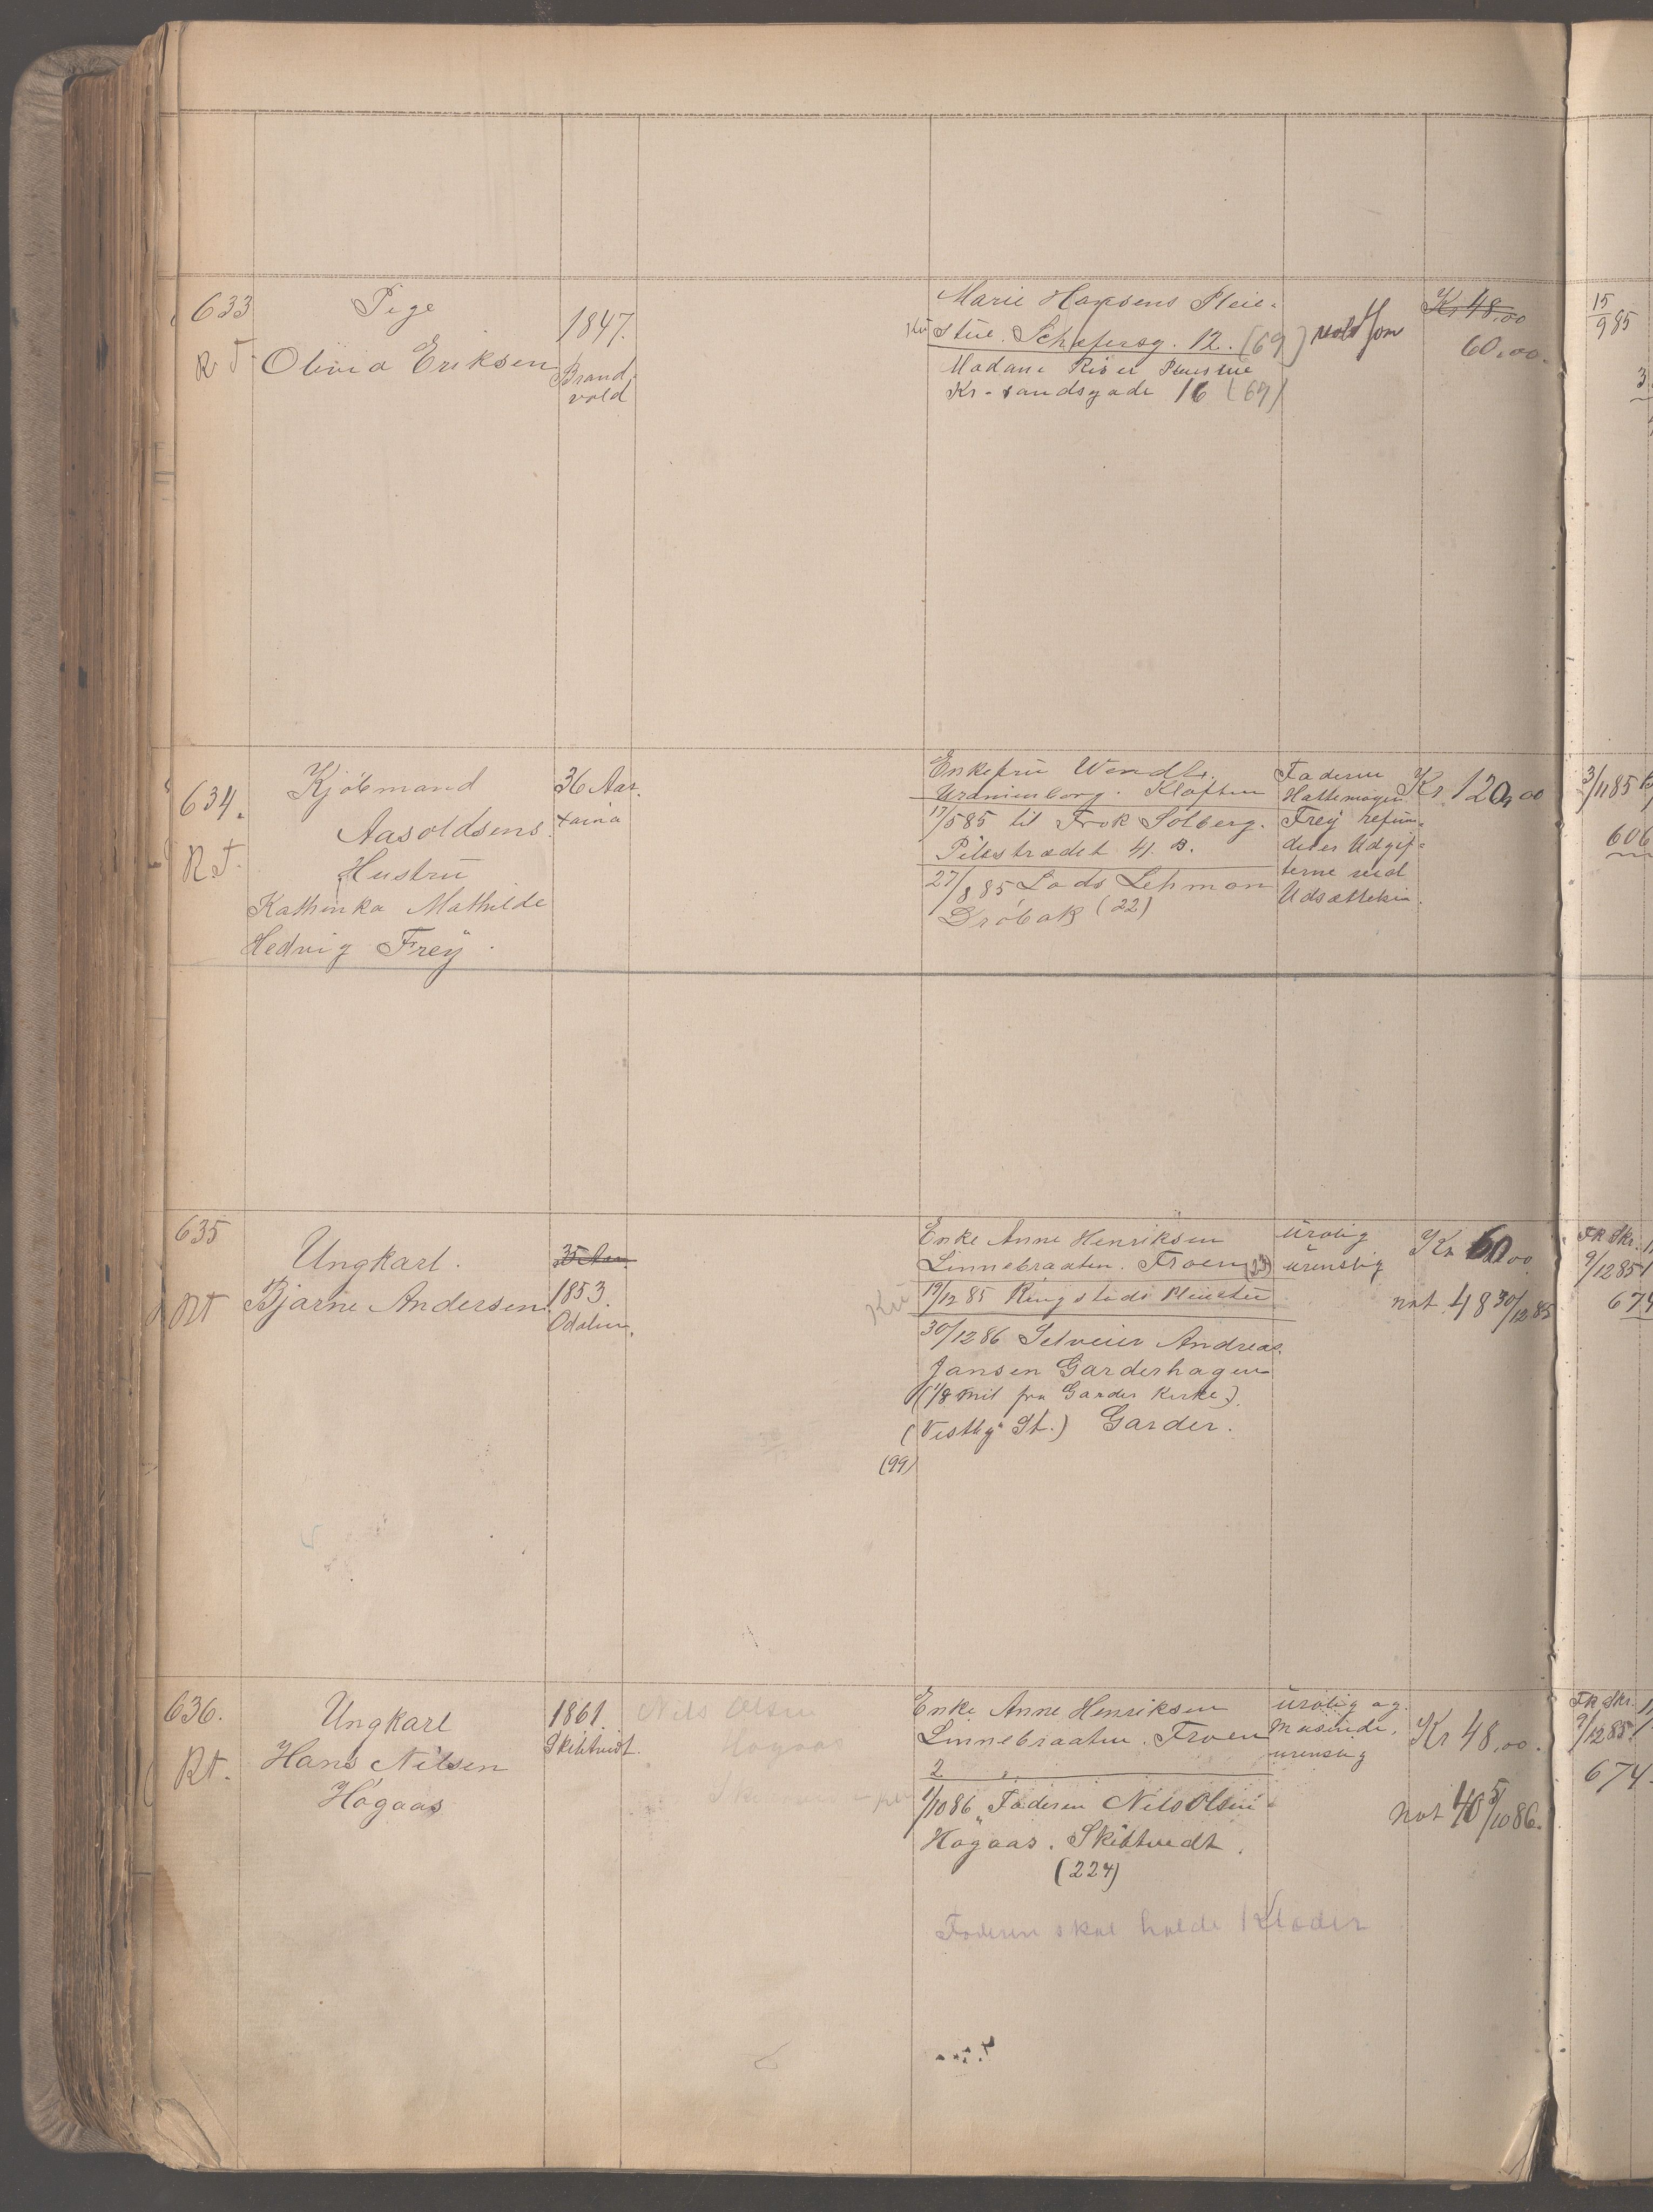 633
R T
Pige
Olivia Eriksen
1847.
Brand,
vold
Marie Hansens Pleie-
stue. Schafersg. 12. (69)
Madame Riser Pleiestue
Kr-sandsgade 16 (69)
Kr 48,00
60,00.
15/9 85
634.
R.T.
Kjöbmand
Aasoldsens
Hustru
Kathinka Mathilde
Hedvig Frey.
36 Aar.
Enkefru Wendt,
Uranienborg. Kloften
17/5 85 til Frok Solberg.
Pilestrædet 41. B.
27/8 85 Lods Lehman
Dröbak (22)
Faderen
Hattemager
Frey refun-
derer Udgif-
terne ved
Udsættelsen.
Kr. 120,00
3/11 85
606
635
RT
Ungkarl.
Bjarne Andersen.
35 Aar.
1853.
Odalen.
Enke Anne Henriksen
Linnebraaten. Froen
19/12 85 Ringstads Pleiestue
30/12 86 Selveier Andreas
Jansen Garderhagen
(1/8 Mil fra Garder Kirke)
(Vestby St.) Garder.
(99)
urolig
urenslig
Kr 60,00
nat 48 30/12 85
FR Skr.
9/12 85
674
636.
RT.
Ungkarl
Hans Nilsen
Högaas
1861.
Skibtvedt.
Nils Olsen
Hogaas
Enke Anne Henriksen
Linnebraaten. Froen
1/10 86 Faderen Nils Olsen
Högaas. Skibtvedt.
(224)
Faderen skal holde Klæder
urolig og
urenslig
Kr 48,00.
nat 40 5/10 86.
FR Skr.
9/12 85
674